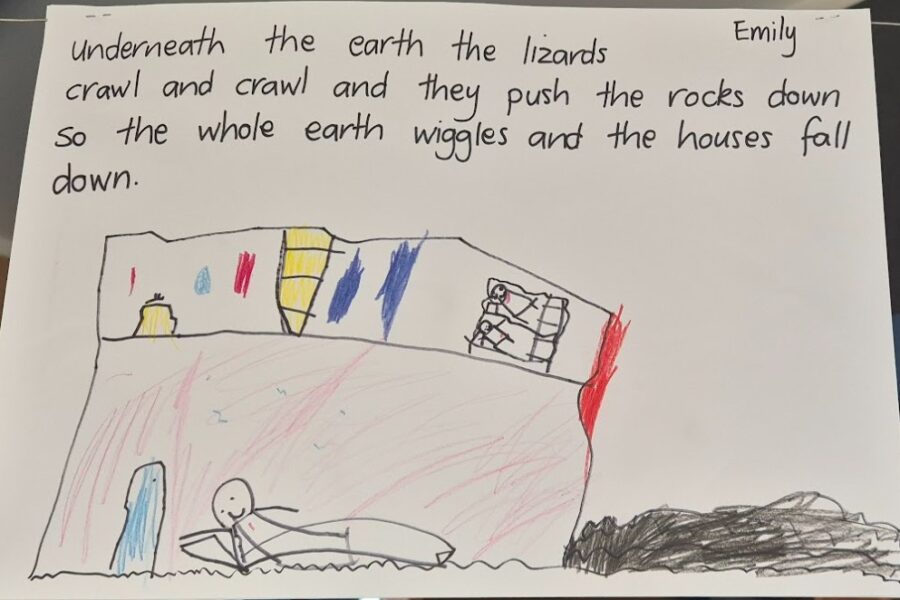 Emily
underneath the earth the lizards
crawl and crawl and they push the rocks down
so the whole earth wiggles and the houses fall
down.